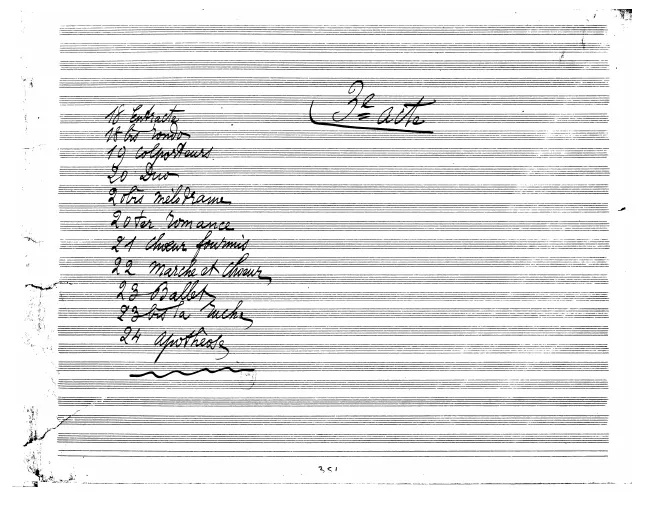 3e acte
18 Entracte
18 bis rondo
19 colporteurs
20 Duo
20 bis mélodrame
20 ter romance
21 Choeur fourmis
22 marche et Choeur
23 Ballet
23 bis la ruche
24 apothéose
351